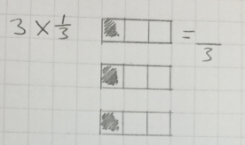 3 × 1/3 = /3